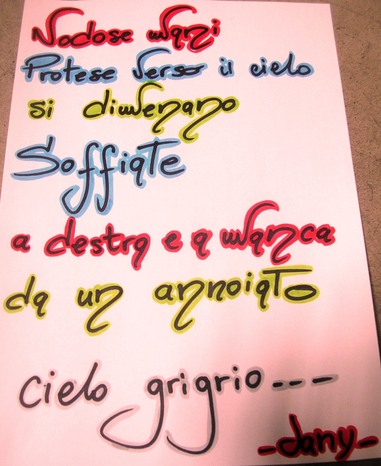 Nodose mani
Protese verso il cielo
si dimenano
Soffiate
a destra e a manca
da un annoiato
cielo grigrio---
-dany-